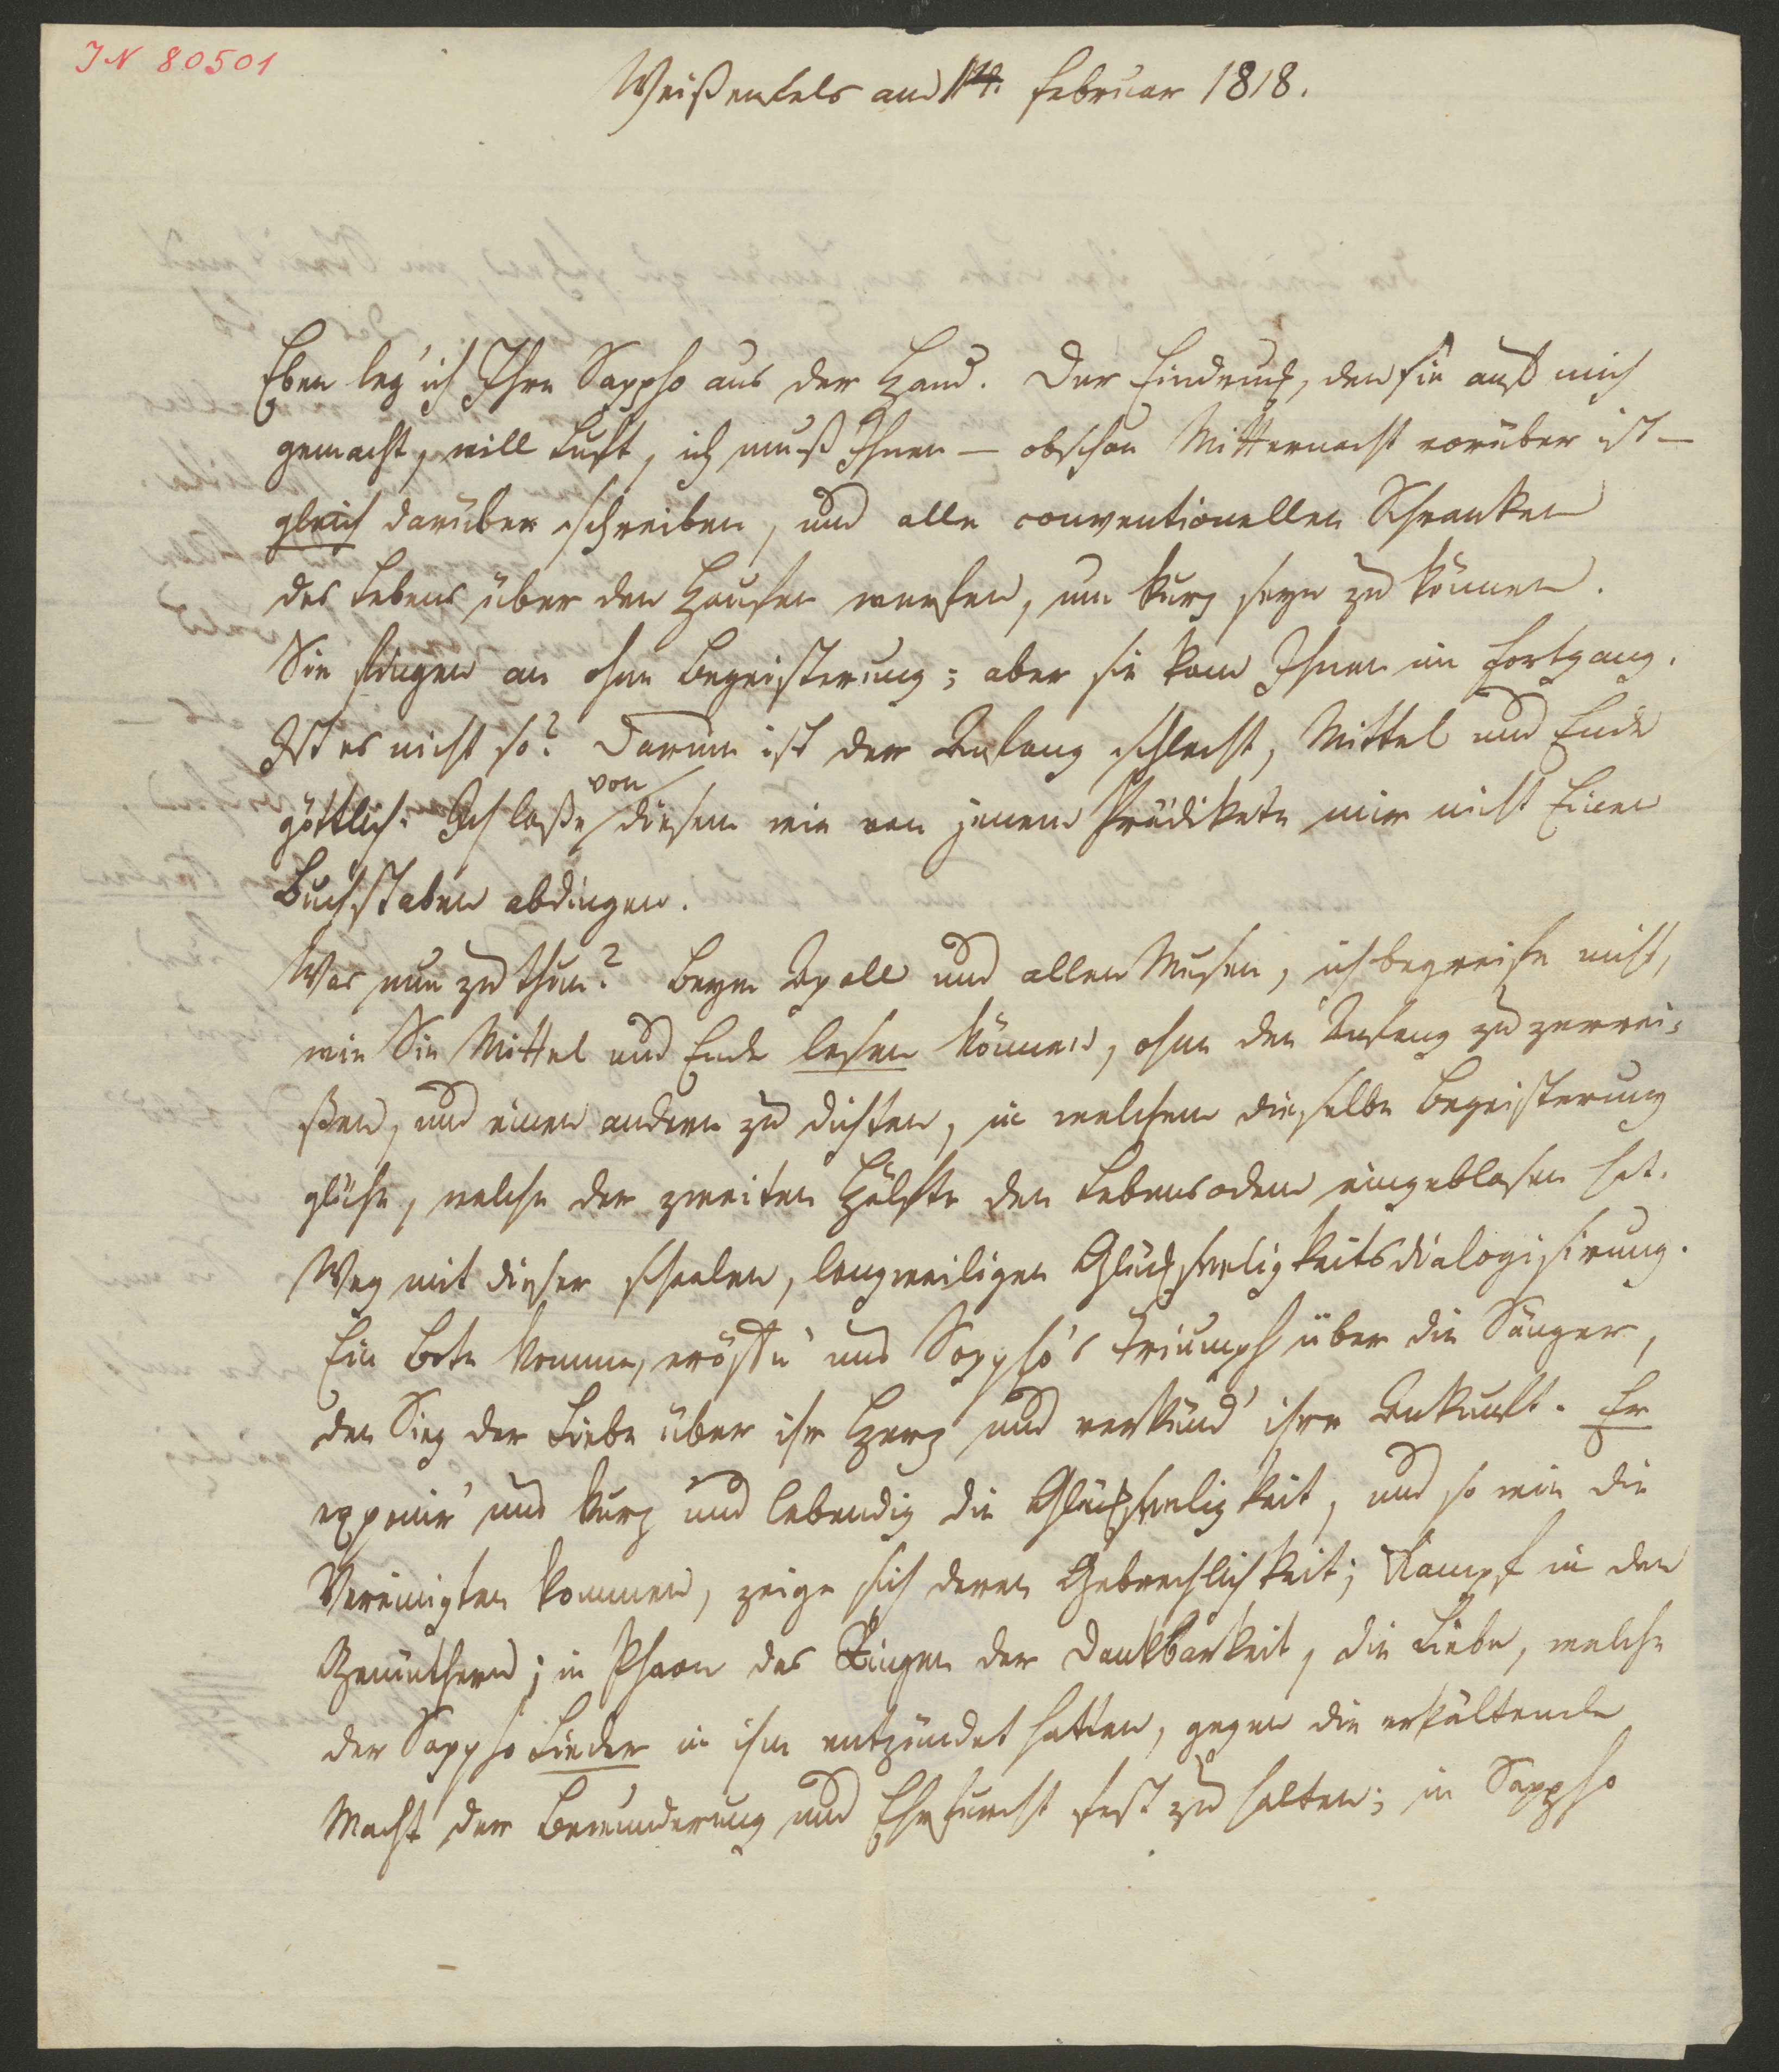 JN 80501
Weißenfels am Februar 1818.
Eben leg' ich Ihre Sappho aus der Hand. Der Eindruck, den sie auf mich
gemacht, will Luft, ich muß Ihnen — obschon Mitternacht vorüber ist —
gleich darüber schreiben, und alle conventionellen Schranken
des Lebens über den Haufen werfen, um kurz seyn zu können.
Sie fingen an ohne Begeisterung; aber sie kam Ihnen im Fortgang.
Ist es nicht so? Darum ist der Anfang schlecht, Mittel und Ende
göttlich. Ich laße von diesem wie von jenem Prädikate mir nicht Einen
Buchstaben abdingen.
Was nun zu thun? Beym Apoll und allen Musen, ich begreife nicht,
wie Sie Mittel und Ende lesen können, ohne den Anfang zu zerrei-
ßen, und einen andern zu dichten, in welchem dieselbe Begeisterung
glühe, welche der zweiten Hälfte den Lebensodem eingeblasen hat.
Weg mit dieser schaalen, langweiligen Glückseeligkeitsdialogisirung.
Ein Bote komme, eröffn' uns Sappho's Triumph über die Sänger,
den Sieg der Liebe über ihr Herz und verkünd' ihre Ankunft. Er
exponir' uns kurz und lebendig die Glückseeligkeit, und so wie die
Vereinigten kommen, zeige sich deren Gebrechlichkeit; Kampf in den
Gemüthern; in Phaon das Ringen der Dankbarkeit, die Liebe, welche
der Sappho Lieder in ihm entzündet hatten, gegen die erkältende
Macht der Bewunderung und Ehrfurcht fest zu halten; in Sappho